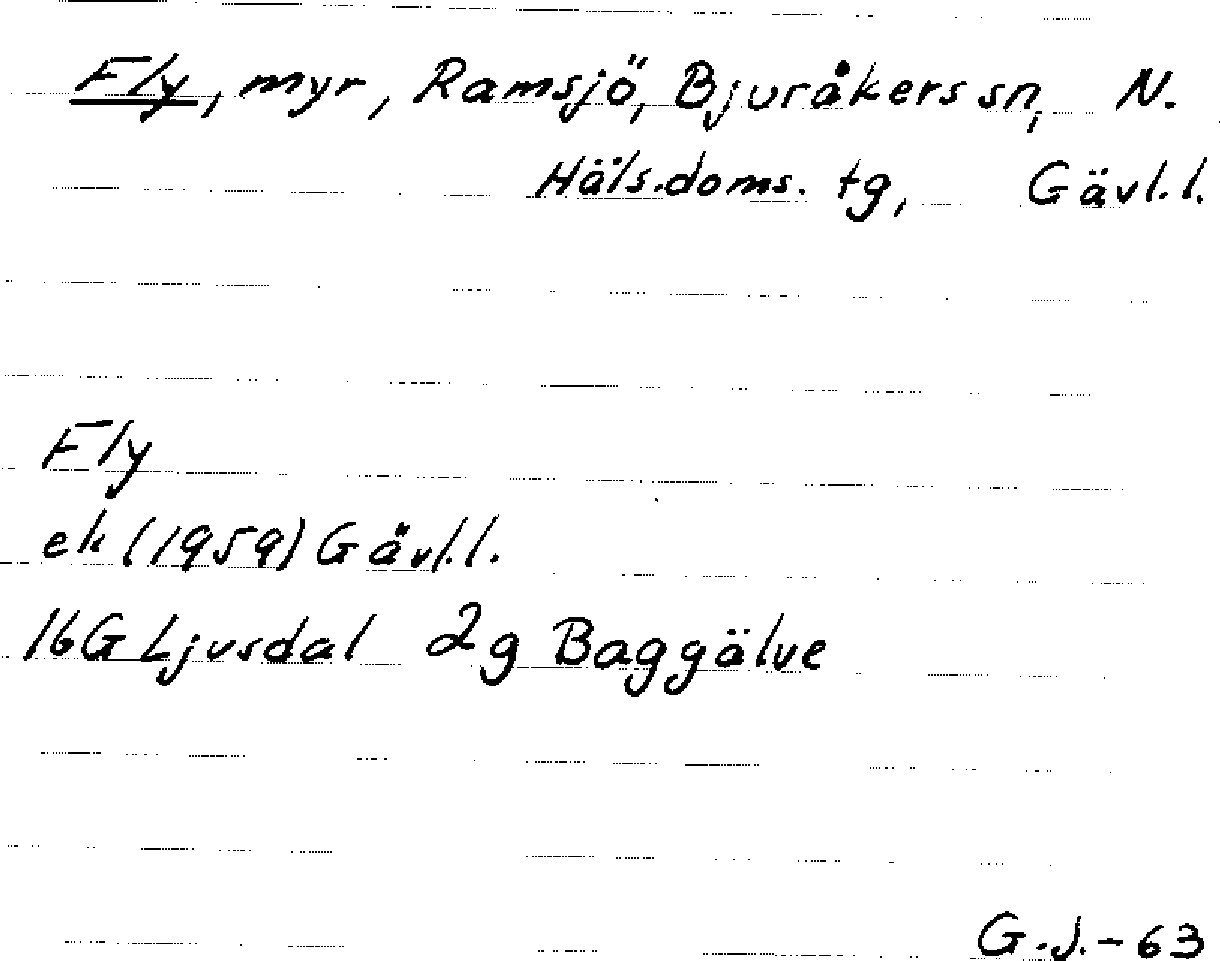 Fly, myr, Ramsjö, Bjuråkers sn, N.
Häls.doms. tg, Gävl.l.
Fly
ek (1959) Gävl.l.
16G Ljusdal 2g Baggälve
G.J.-63